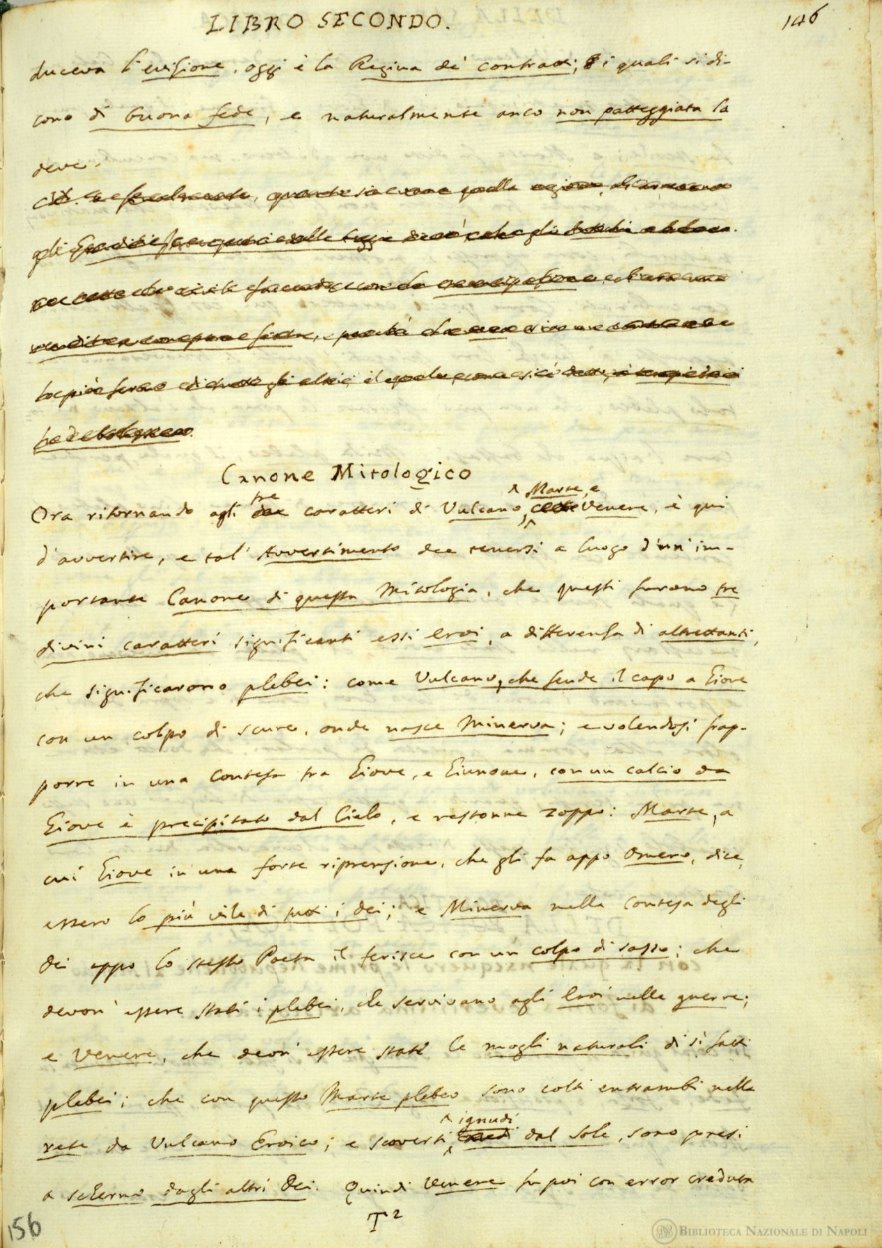 LIBRO SECONDO.
146
duceva l'evizione, oggi è la Regina de' contratti, i quali si di-
cono di buona fede, e naturalmente anco non patteggiata la
deve.
Canone Mitologico
Ora ritornando agli tre caratteri di Vulcano, Marte, e Venere, è qui
d'avvertire, e tal' Avvertimento dee tenersi a luogo d'un im-
portante Canone di questa Mitologia, che questi furono tre
divini caratteri significanti essi Eroi, a differenza di altrettanti,
che significarono plebei: come Vulcano, che fende il capo a Giove
con un colpo di scure, onde nasce Minerva; e volendosi frap-
porre in una contesa tra Giove, e Giunone, con un calcio da
Giove è precipitato dal Cielo, e restonne zoppo: Marte, a
cui Giove in una forte riprensione, che gli fa appo Omero, dice,
essere lo più vile di tutti i dei; e Minerva nella contesa degli
dei appo lo stesso Poeta il ferisce con un colpo di sasso; che
devon' essere stati i plebei, che servivano agli Eroi nelle guerre;
e Venere, che deon' essere state le mogli naturali di sì fatti
plebei; che con questo Marte plebeo sono colti entrambi nella
rete da Vulcano Eroico; e scoverti ignudi dal Sole, sono presi
a scherno dagli altri Dei. Quindi Venere fu poi con error creduta
T2
156
BIBLIOTECA NAZIONALE DI NAPOLI